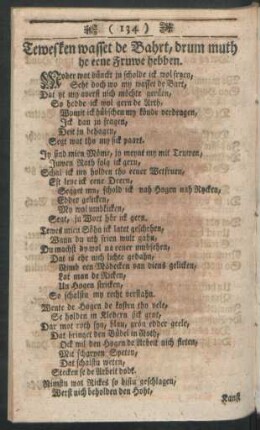 ( 134 )
Tewesken wasset de Bahrt, drum muth
he eene Fruwe hebben.
Moder wat dünckt ju scholde ick wol fryen,
Sehe doch wo my wasset de Bart,
Dat yt my averst nich möchte
So hedde ick wol gern de Arth,
Womit ick hübschen my könde verdregen,
Ick kan ju fragen,
Deit in behagen,
Segt wat tho my sick paart.
Jy sind mien Möme, jy meynt my mit Truwen,
Juwen Rath folg ick gern,
Schal ick my holden tho eener Wetfruen,
Est leve ick eene Deeren,
Segget my, schold ick nah Hogen nah Rycken,
Edder gelicken,
My wol umkicken,
Segt, ju Wort hör ick gern.
Tewes mien Söhn ick latet geschehen,
Wann du uth frien wult gahn,
Du muchst dy wol na eener umbsehen,
Dat is ehr nich lichte gedahn,
Nimb een Mädecken van diens gelicken,
Lat man de Ricken,
Un Hogen stricken,
So schalstu my recht verstahn.
Wente de Hogen de kosten tho vele,
Se holden in Kledern sick grot,
Dar mot roth syn, blau, grön edder geele,
Dat bringet den Büdel in Noth,
Ock wil den Hogen de Arbeit nich fleten,
Mit scharpen Speten,
Dat schalstu weten,
Stecken se de Arbeit dodt.
Nimstu wat Rickes so bistu geschlagen,
Werst nich beholden den Hoht,
Kanst